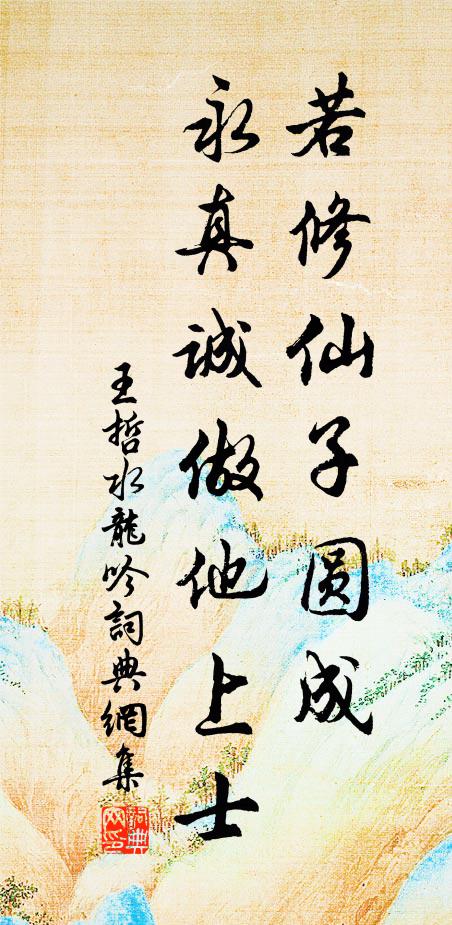 若修仙子圆成
永真誠做他上士
王哲水龍吟詞典網集
詞典
网印